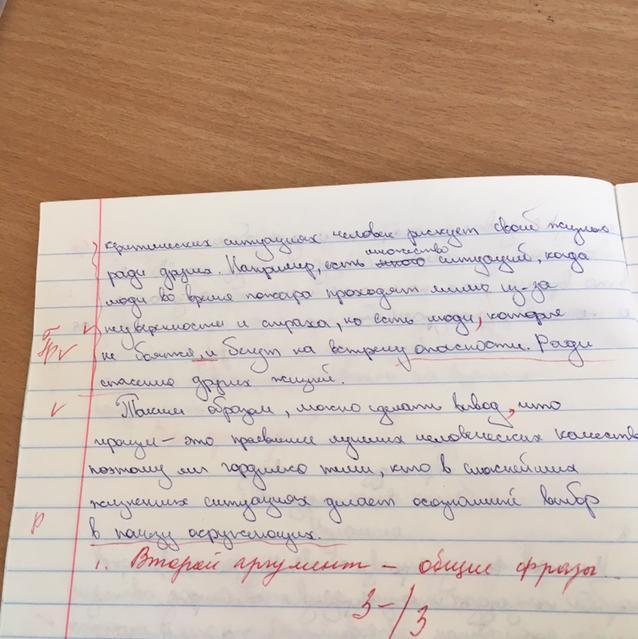 критических ситуациях человек рискует своей жизнью
ради других. Например, есть множество ситуаций, когда
люди во время пожара проходят мимо из-за
неуверенности и страха, но есть люди, которые
не боятся, и бегут на встречу опасности. Ради
спасения других жизней.
Таким образом, можно сделать вывод, что
героизм – это проявление лучших человеческих качеств
поэтому мы гордимся теми, кто в сложнейших
жизненных ситуациях делает осознанный выбор
в пользу окружающих.
1. Второй аргумент – общие фразы...
3-/3